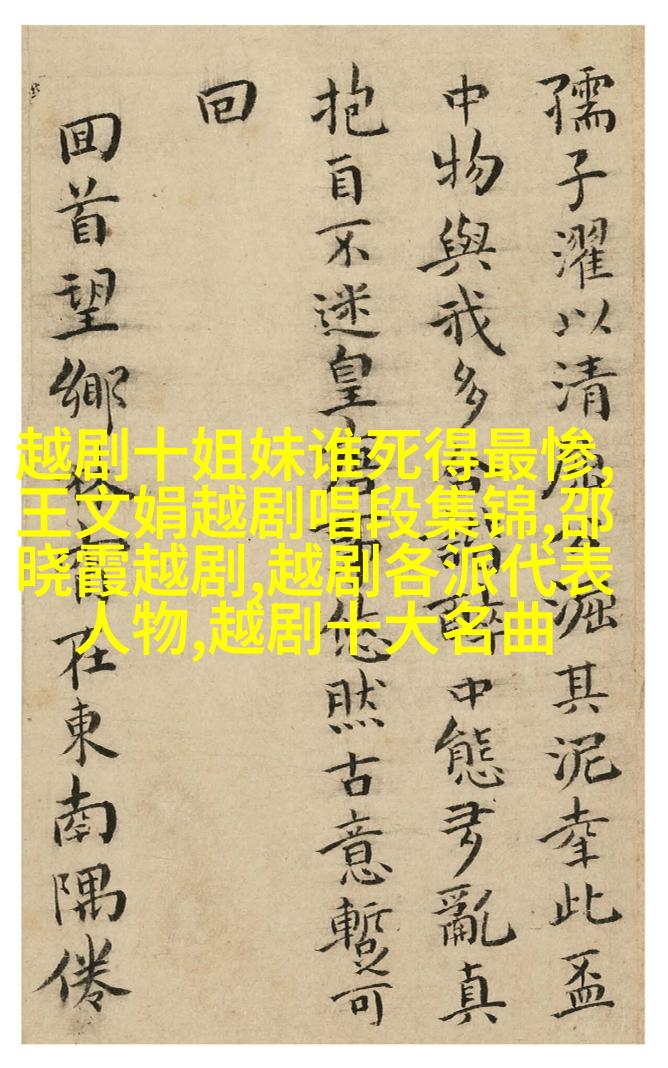 孺子濯以清屈公淈其泥幸此盃
中物與我多合翻醉中態多亂真
抱自不迷皇唐悠然古意暫可
回
回首望鄉枌甯在東南隅倦
越剧十姐妹谁死得最惨,
王文娟越剧唱段集锦,邵
晓霞越剧,越剧各派代表
人物,越剧十大名曲